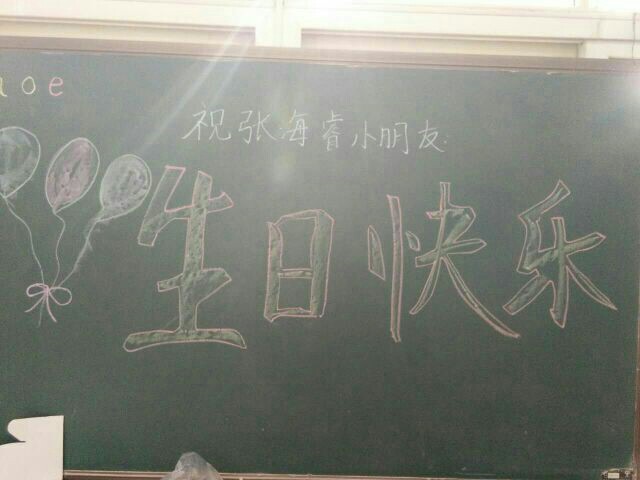 o e
祝张海睿小朋友:
生日快乐